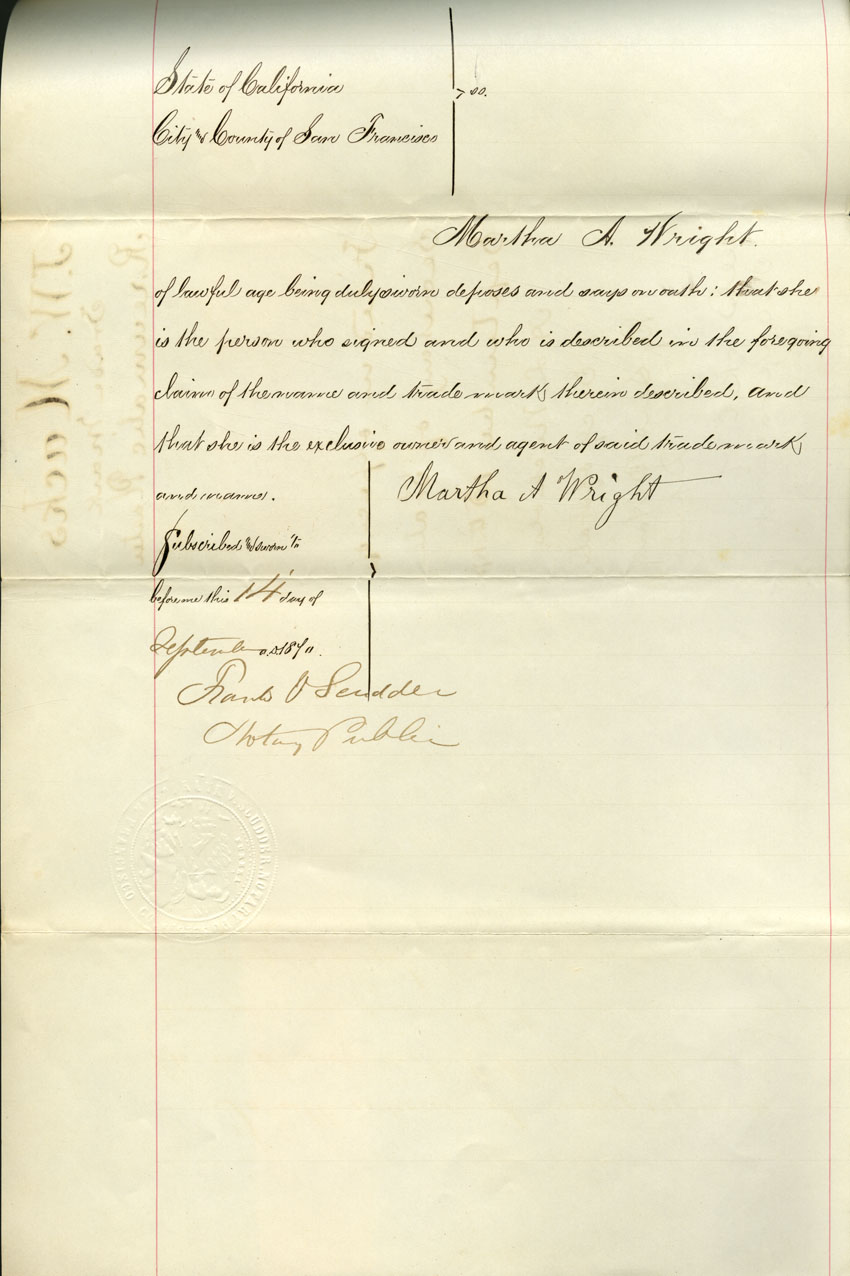 State of California
ss.
City & County of San Francisco
Martha A. Wright.
of lawful age being duly sworn deposes and says on oath: that she
is the person who signed and who is described in the foregoing
claim of the name and trade mark therein described, and
that she is the exclusive owner and agent of said trade mark
and name.
Martha A Wright
Subscribed & sworn to
before me this 14 day of
September A.D. 187
Frank V Scudder
Notary Public
SCUDDER, NOTARY